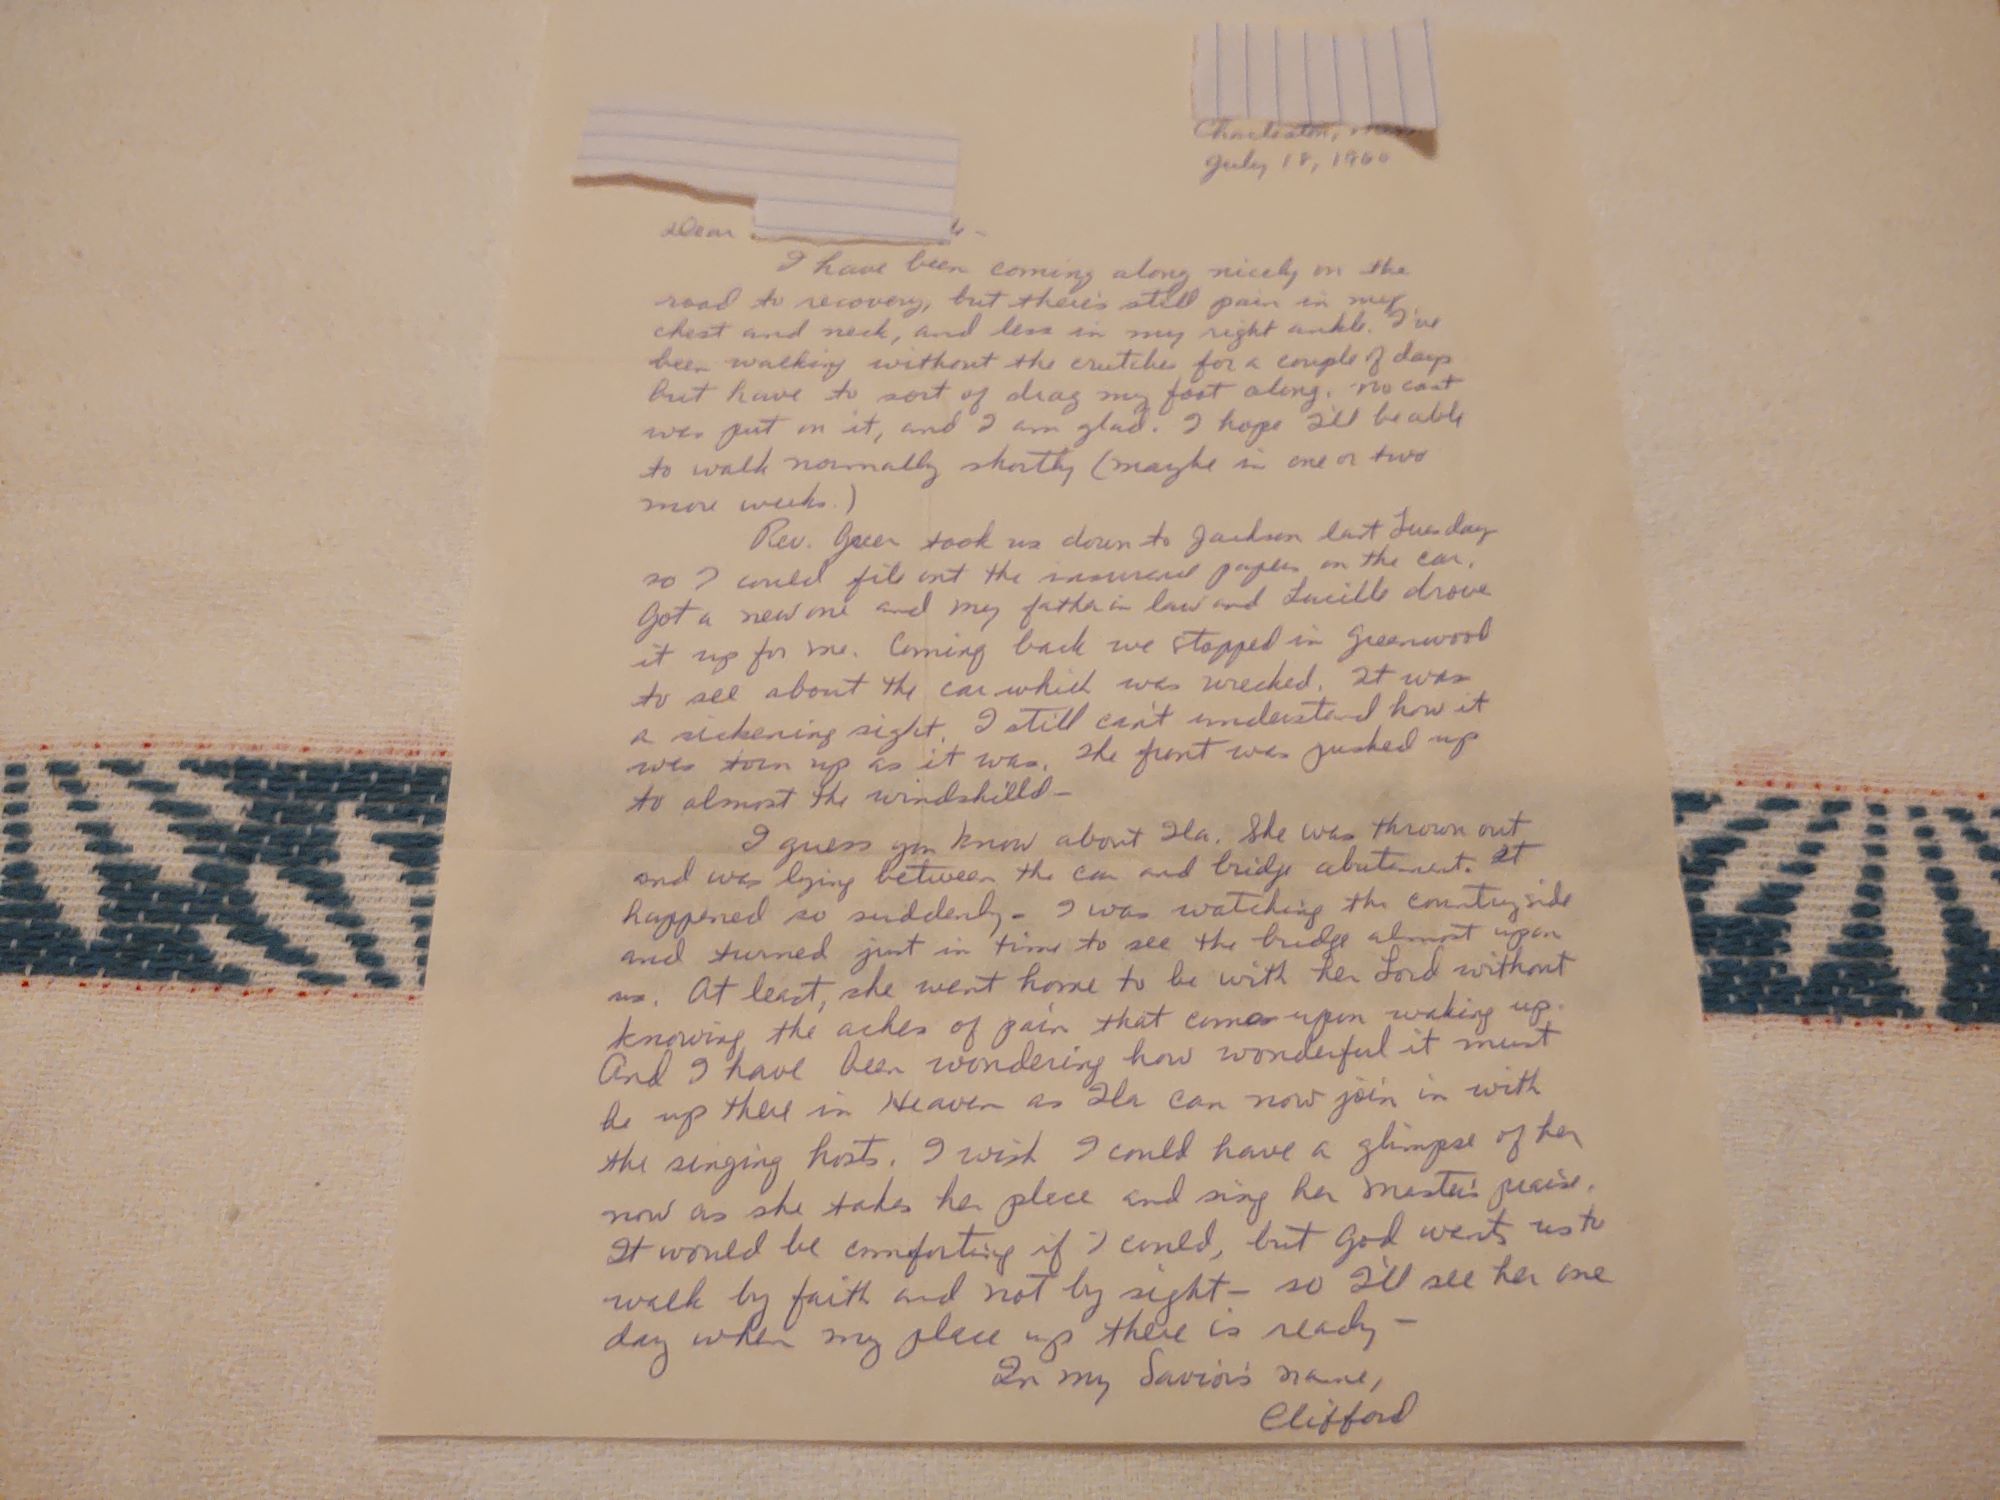 Charleston, Miss.
July 18, 1960
Dear
I have been coming along nicely on the
road to recovery, but there's still pain in my
chest and neck, and less in my right ankle. I've
been walking without the crutches for a couple of days
but have to sort of drag my foot along. No cast
was put on it, and I am glad. I hope I'll be able
to walk normally shortly (maybe in one or two
more weeks.)
Rev. Greer took us down to Jackson last Tuesday
so I could fill out the insurance papers on the car.
Got a new one and my father in law and Lucille drove
it up for me. Coming back we stopped in Greenwood
to see about the car which was wrecked. It was
a sickening sight. I still can't understand how it
was torn up as it was. The front was pushed up
to almost the windshield -
I guess you know about Ila. She was thrown out
and was lying between the car and bridge abutment. It
happened so suddenly - I was watching the countryside
and turned just in time to see the bridge almost upon
us. At least, she went home to be with her Lord without
knowing the aches of pain that comes upon waking up.
And I have been wondering how wonderful it must
be up there in Heaven as Ila can now join in with
the singing hosts. I wish I could have a glimpse of her
now as she takes her place and sing her Master's praise.
It would be comforting if I could, but God wants us to
walk by faith and not by sight - so I'll see her one
day when my place up there is ready -
In my Savior's name,
Clifford